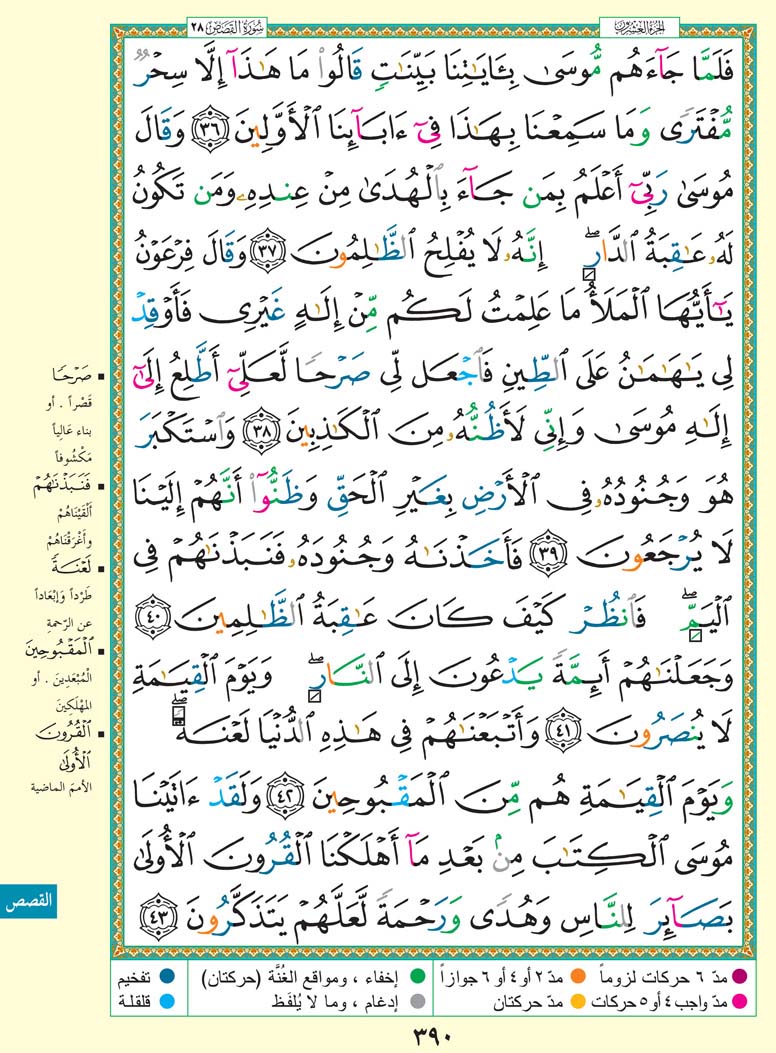 سُورَةُ القَصَصِ ٢٨
الجُزءُ العِشرُون
فَلَمَّا جَآءَهُم مُّوسَىٰ بِـَٔايَـٰتِنَا بَيِّنَـٰتٍ قَالُوا۟ مَا هَـٰذَآ إِلَّا سِحْرٌ
مُّفْتَرًى وَمَا سَمِعْنَا بِهَـٰذَا فِىٓ ءَابَآئِنَا ٱلْأَوَّلِينَ ٣٦ وَقَالَ
مُوسَىٰ رَبِّىٓ أَعْلَمُ بِمَن جَآءَ بِٱلْهُدَىٰ مِنْ عِندِهِۦ وَمَن تَكُونُ
لَهُۥ عَـٰقِبَةُ ٱلدَّارِ ۖ إِنَّهُۥ لَا يُفْلِحُ ٱلظَّـٰلِمُونَ ٣٧ وَقَالَ فِرْعَوْنُ
يَـٰٓأَيُّهَا ٱلْمَلَأُ مَا عَلِمْتُ لَكُم مِّنْ إِلَـٰهٍ غَيْرِى فَأَوْقِدْ
لِى يَـٰهَـٰمَـٰنُ عَلَى ٱلطِّينِ فَٱجْعَل لِّى صَرْحًا لَّعَلِّىٓ أَطَّلِعُ إِلَىٰٓ
إِلَـٰهِ مُوسَىٰ وَإِنِّى لَأَظُنُّهُۥ مِنَ ٱلْكَـٰذِبِينَ ٣٨ وَٱسْتَكْبَرَ
هُوَ وَجُنُودُهُۥ فِى ٱلْأَرْضِ بِغَيْرِ ٱلْحَقِّ وَظَنُّوٓا۟ أَنَّهُمْ إِلَيْنَا
لَا يُرْجَعُونَ ٣٩ فَأَخَذْنَـٰهُ وَجُنُودَهُۥ فَنَبَذْنَـٰهُمْ فِى
ٱلْيَمِّ ۖ فَٱنظُرْ كَيْفَ كَانَ عَـٰقِبَةُ ٱلظَّـٰلِمِينَ ٤٠
وَجَعَلْنَـٰهُمْ أَئِمَّةً يَدْعُونَ إِلَى ٱلنَّارِ ۖ وَيَوْمَ ٱلْقِيَـٰمَةِ
لَا يُنصَرُونَ ٤١ وَأَتْبَعْنَـٰهُمْ فِى هَـٰذِهِ ٱلدُّنْيَا لَعْنَةً ۖ
وَيَوْمَ ٱلْقِيَـٰمَةِ هُم مِّنَ ٱلْمَقْبُوحِينَ ٤٢ وَلَقَدْ ءَاتَيْنَا
مُوسَى ٱلْكِتَـٰبَ مِنۢ بَعْدِ مَآ أَهْلَكْنَا ٱلْقُرُونَ ٱلْأُولَىٰ
بَصَآئِرَ لِلنَّاسِ وَهُدًى وَرَحْمَةً لَّعَلَّهُمْ يَتَذَكَّرُونَ ٤٣
صَرْحًا
قَصْراً . أو
بناء عالياً
مَكْشُوفاً
فَنَبَذْنَـٰهُمْ
أَلْقَيْنَاهُمْ
وأَغْرَقْنَاهُمْ
لَعْنَةً
طَرْداً وَإِبْعَاداً
عن الرّحمةِ
ٱلْمَقْبُوحِينَ
الْمُبْعَدِينَ . أو
المهْلَكِينَ
ٱلْقُرُونَ
ٱلْأُولَىٰ
الأممَ الماضية
القصص
مدّ ٦ حركات لزوماً
مدّ ٢ أو ٤ أو ٦ جوازاً
إخفاء ، ومواقع الغُنَّة (حركتان)
تفخيم
مدّ واجب ٤ أو ٥ حركات
مدّ حركتان
إدغام ، وما لا يُلفَظ
قلقلة
٣٩٠